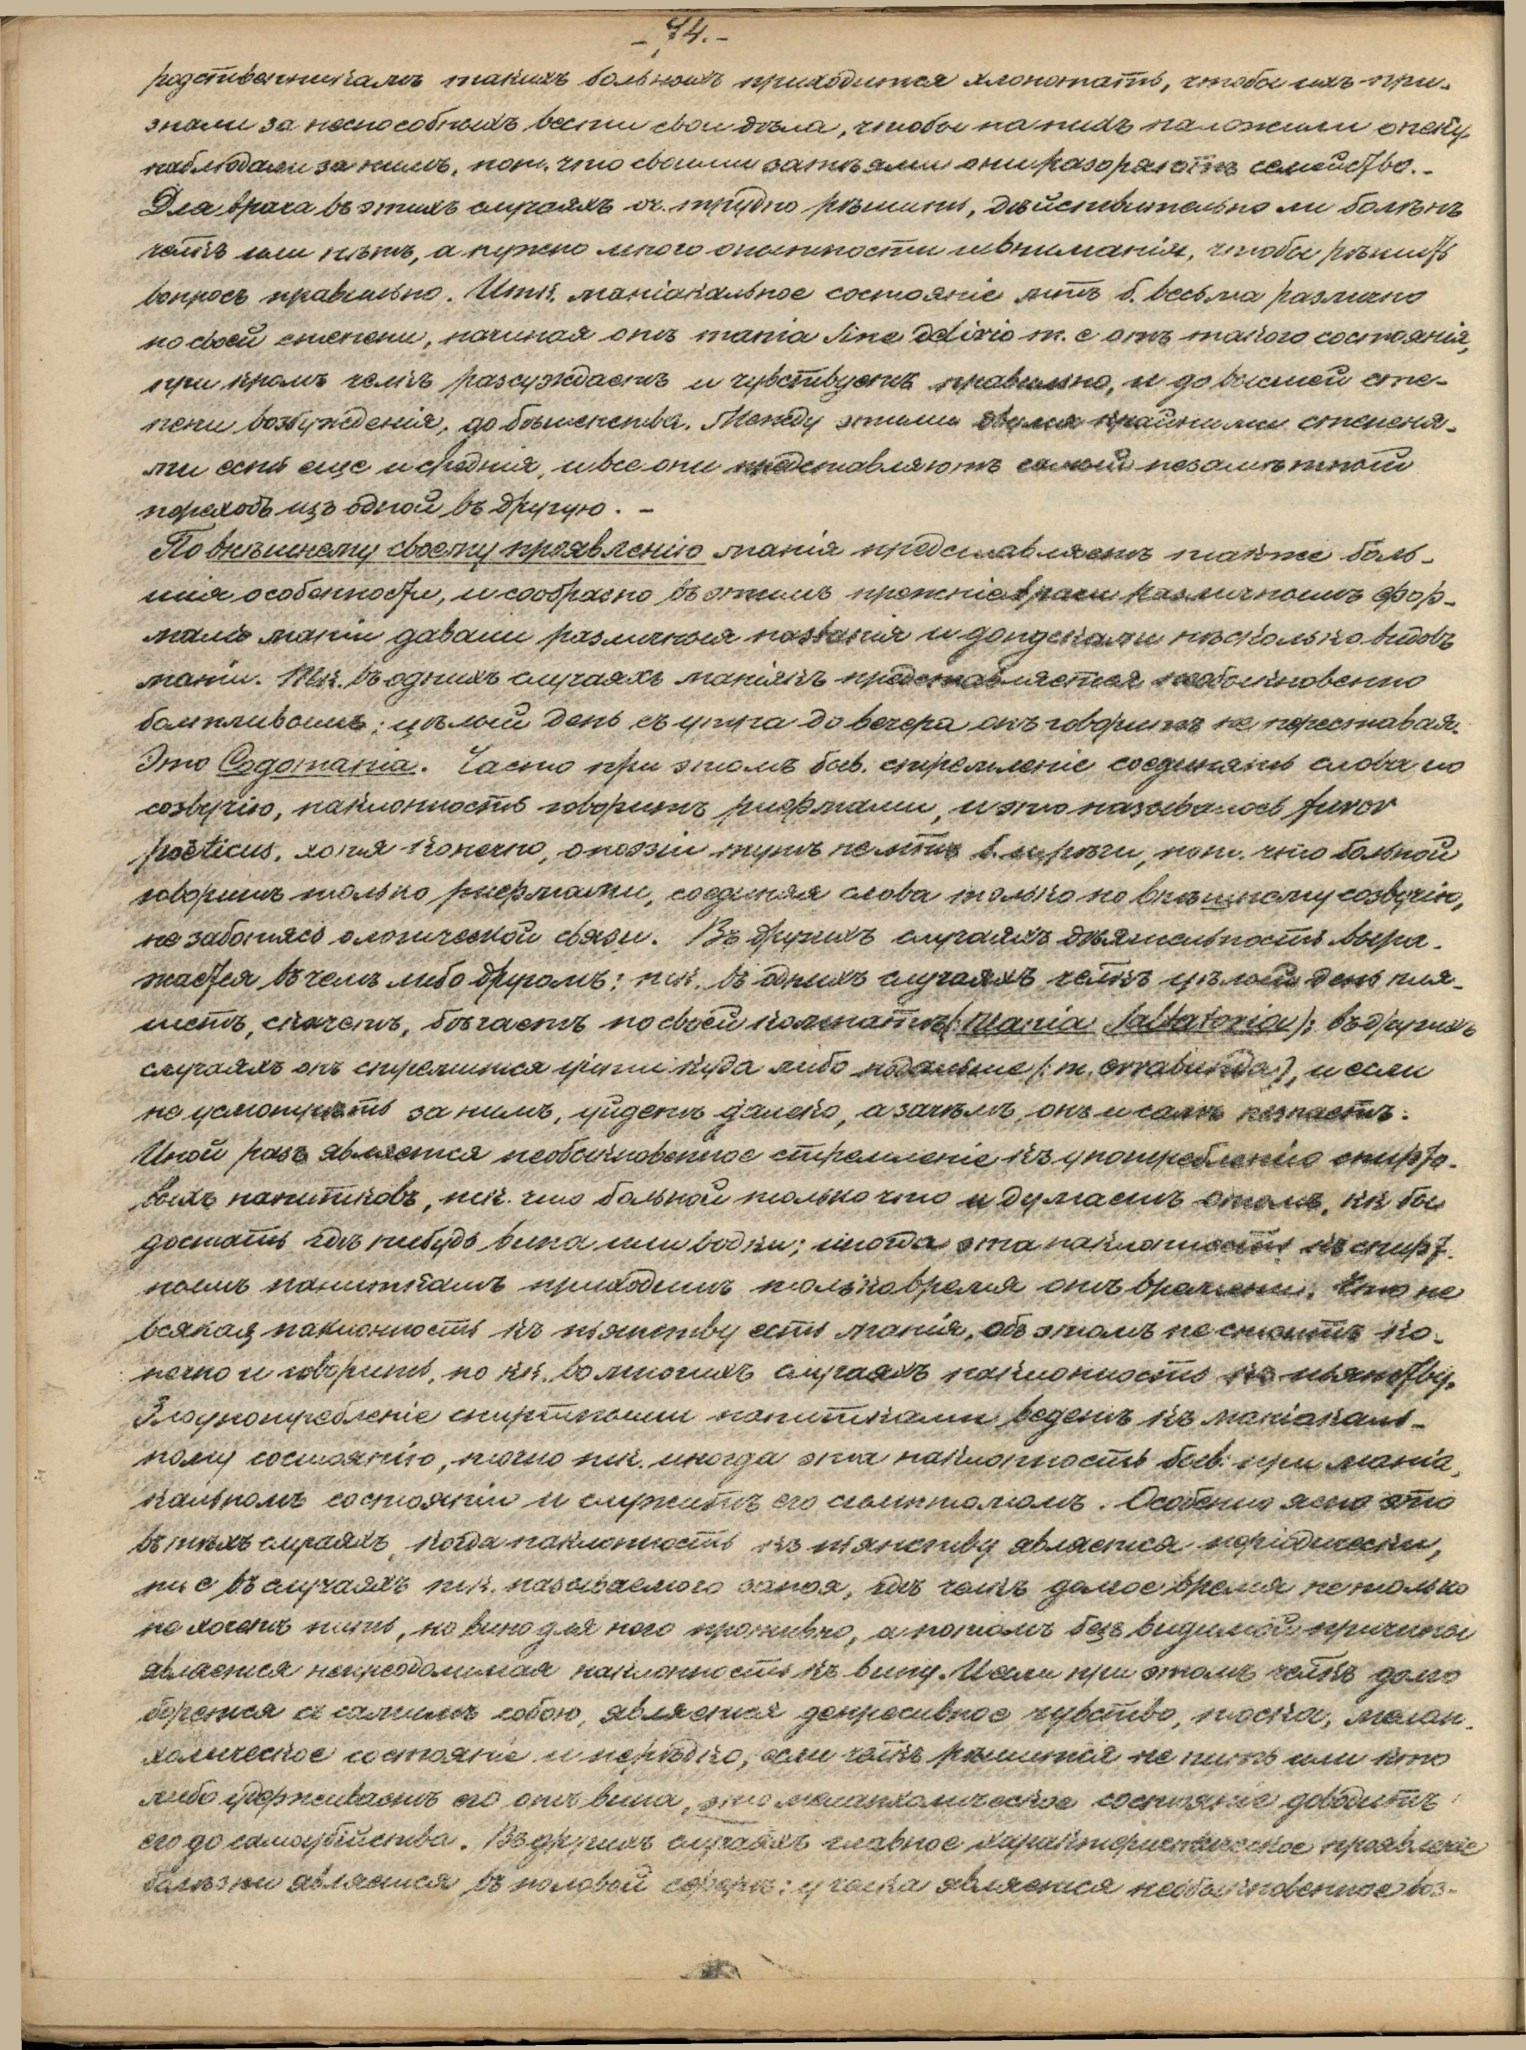 - 74. -
родственникамъ такихъ больныхъ приходится хлопотать, чтобы ихъ при-
знали за неспособныхъ вести свои дѣла, чтобы на нихъ наложили опеку,
наблюдали за нимъ, пот. что своими затѣями они разоряютъ семейство. -
Для врача въ этихъ случаяхъ оч. трудно рѣшить, дѣйствительно ли боленъ
челкъ или нѣтъ, а нужно много опытности и вниманія, чтобы рѣшить
вопросъ правильно. Итк. маніакальное состояніе мтъ б. весьма различно
по своей степени, начиная отъ mania sine delirio т. е отъ такого состоянія,
при кромъ челкъ разсуждаетъ и чувствуетъ правильно, и до высшей сте-
пени возбужденія, до бѣшенства. Между этими двумя крайними степеня-
ми есть еще и средніе, и все они представляютъ самый незамѣтный
переходъ изъ одной въ другую. -
По внѣшнему своему проявленію манія представляетъ также боль-
шія особенности, и сообразно съ этимъ прежніе врачи различнымъ фор-
мамъ маніи давали различныя названія и допускали нѣсколько видовъ
маніи. Тк. въ однихъ случаяхъ маніякъ представляется необыкновенно
болтливымъ; цѣлый день съ утра до вечера онъ говоритъ не переставая.
Это Logomania. Часто при этомъ быв. стремленіе соединять слова по
созвучію, наклонность говорить риѳмами, и это называлось furor
poëticus, хотя конечно, о поэзіи тутъ не мтъ б. и рѣчи, пот. что больной
говоритъ только риѳмами, соединяя слова только по внѣшнему созвучію,
не заботясь о логической связи. Въ другихъ случаяхъ дѣятельность выра-
жается въ чемъ либо другомъ: тк. въ однихъ случаяхъ челкъ цѣлый день пля-
шетъ, скачетъ, бѣгаетъ по своей комнатѣ (: Mania saltatoria); въ другихъ
случаяхъ онъ стремится уйти куда либо подальше (: m. errabunda), и если
не усмотрѣть за нимъ, уйдетъ далеко, а зачѣмъ, онъ и самъ не знаетъ.
Иной разъ является необыкновенное стремленіе къ употребленію спирто-
выхъ напитковъ, тк. что больной только что и думаетъ о томъ, кк бы
достать гдѣ нибудь вина или водки; иногда эта наклонность къ спирт-
нымъ напиткамъ приходитъ только время отъ времени. Что не
всякая наклонность къ пьянству есть манія, объ этомъ не стоитъ ко-
нечно и говорить, но кк. во многихъ случаяхъ наклонность къ пьянству,
Злоупотребленіе спиртными напитками ведетъ къ маніакаль-
ному состоянію, точно тк. иногда эта наклонность быв. при маніа-
кальномъ состояніи и служитъ его симптомомъ. Особенно ясно это
въ тѣхъ случаяхъ, когда наклонность къ пьянству является періодически,
т. е въ случаяхъ тк. называемаго запоя, гдѣ челкъ долгое время не только
не хочетъ пить, но вино для него противно, а потомъ безъ видимой причины
является непреодолимая наклонность къ вину. И если при этомъ челкъ долго
борется съ самимъ собою, является депресивное чувство, тоска, мелан-
холическое состояніе и нерѣдко, если челкъ рѣшится не пить или кто
либо удерживаетъ его отъ вина, это меланхолическое состояніе доводитъ
его до самоубійства. Въ другихъ случаяхъ главное характеристическое проявленіе
болѣзни является въ половой сферѣ: у челка является необыкновенное воз-